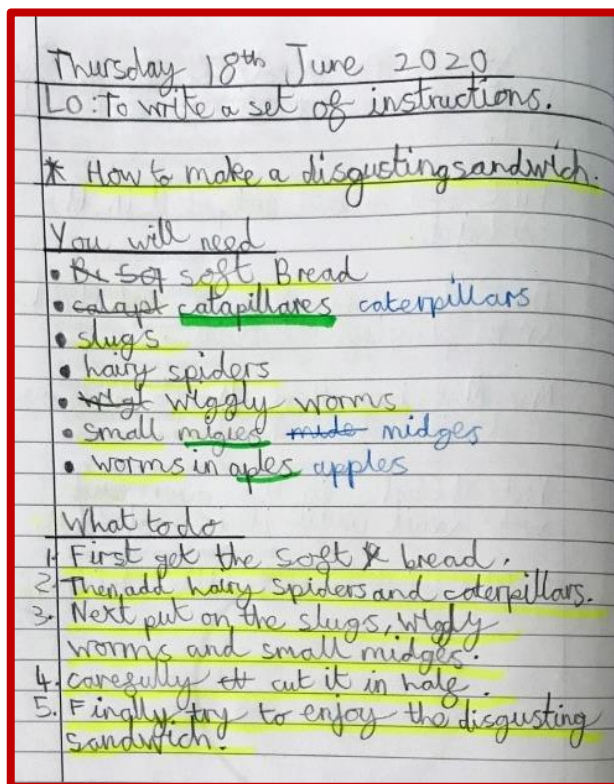 Thursday 18th June 2020
LO: To write a set of instructions.
* How to make a disgusting sandwich.
You will need
• Be Sof soft Bread
• calapt catapillares caterpillars
• slugs
• hairy spiders
• wigl wiggly worms
• small migies mide midges
• worms in aples apples
What to do
1. First get the soft bread.
2. Then, add hairy spiders and caterpillars.
3. Next put on the slugs, wiggly
worms and small midges.
4. carefully cut it in half.
5. Finally, try to enjoy the disgusting
sandwich.